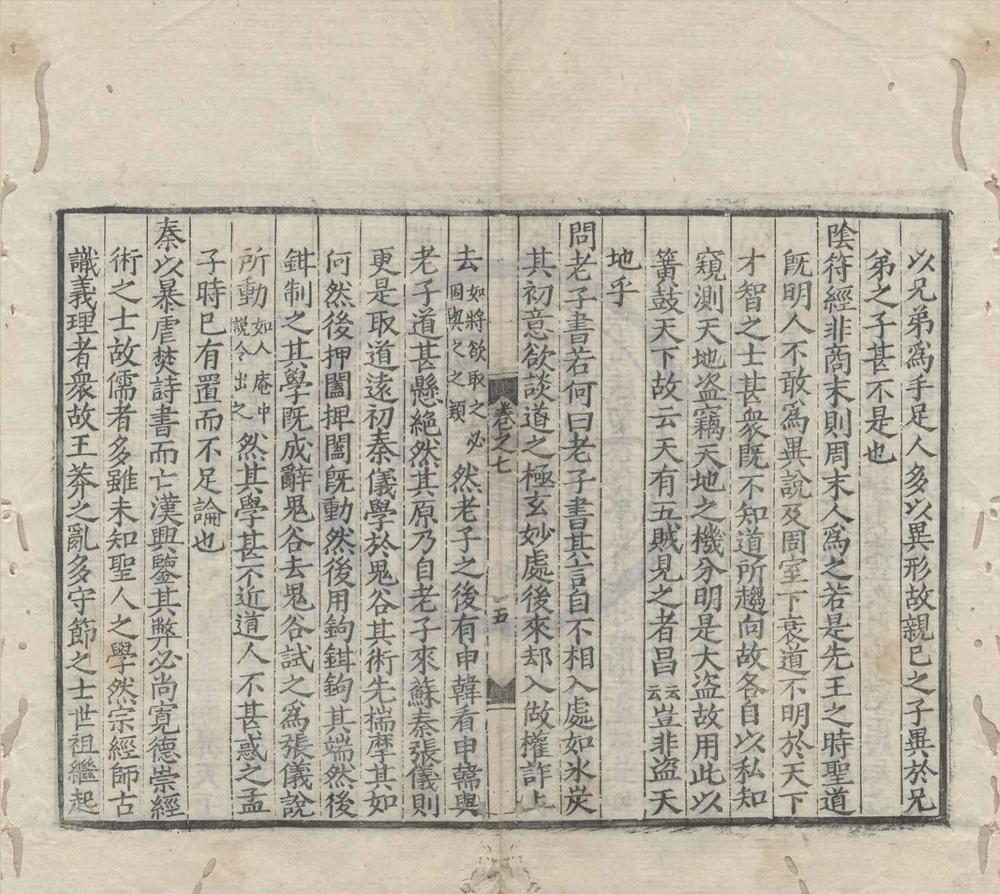 以兄弟爲手足人多以異形故親己之子異於兄
弟之子甚不是也
陰符經非商末則周末人爲之若是先王之時聖道
旣明人不敢爲異說及周室下衰道不明於天下
才智之士甚衆旣不知道所趨向故各自以私知
窺測天地盜竊天地之機分明是大盜故用此以
簧鼓天下故云天有五賊見之者昌云云豈非盜天
地乎
問老子書若何曰老子書其言自不相入處如氷炭
其初意欲談道之極玄妙處後來却入做權詐上
去如將欲取之必固與之之類然老子之後有申韓看申韓與
卷之七
五
老子道甚懸絶然其原乃自老子來蘇秦張儀則
更是取道遠初秦儀學於鬼谷其術先揣摩其如
何然後押闔捭闔旣動然後用鉤鉗鉤其端然後
鉗制之其學旣成辭鬼谷去鬼谷試之爲張儀說
所動如人庵中說令出之然其學甚不近道人不甚惑之孟
子時已有置而不足論也
秦以暴虐焚詩書而亡漢興鑒其弊必尚寬德崇經
術之士故儒者多雖未知聖人之學然宗經師古
識義理者衆故王莽之亂多守節之士世祖繼起